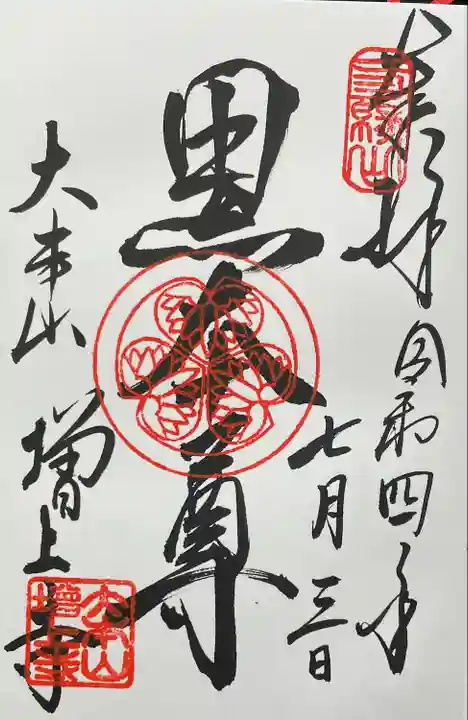 奉拝
三縁山
令和四年
七月三日
黒本尊
大本山
増上寺
大本山
增上寺